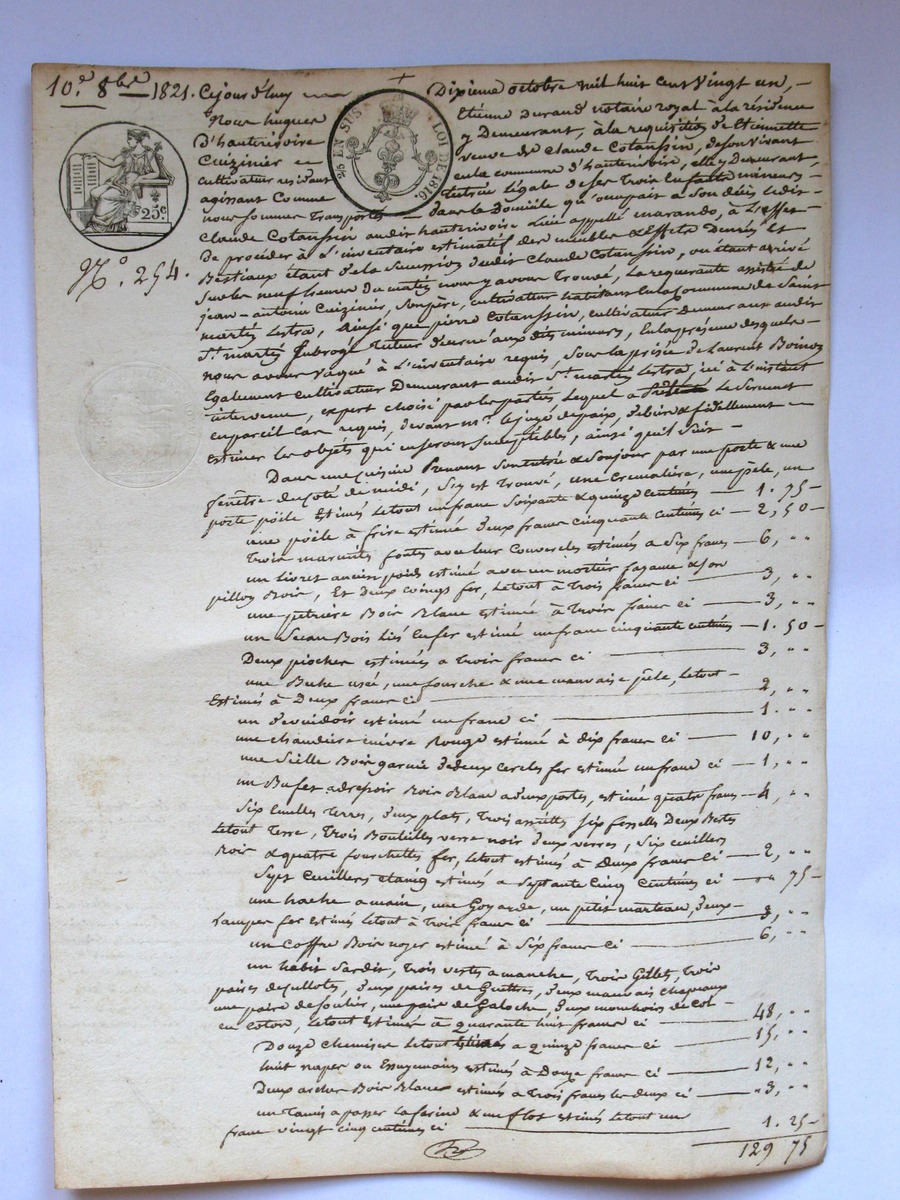 10.e 8bre 1821. Ce jourd'huy Dixieme octobre mil huit cent vingt un,
Nous hugues Etienne durand notaire royal à la résidence
D'hauterivoire y Demeurant, à la requisition de Etiennette
Cuizinier et veuve de Claude Cotanssin, de son vivant
cultivateur residant en la commune d'hauterivoire, elle y Demeurant,
agissant Comme tutrice légale de ses Trois Enfants mineurs
nous sommes transportés dans le Domicile qu'occupait a son décès ledit
Claude Cotanssin audit hauterivoise Lieu appellé marando, à L'effet
De procéder à L'inventaire estimatif des meubles & Effets Denrées Et
Bestiaux étant de la Succession dudit Claude Cotanssin, ou étant arrivé
Sur les neuf heures du matin nous y avons Trouvé, La requerante assistée de
jean-antoine Cuizinier, son père, cultivateur habitant en la Commune de Saint
martin Lestra, Ainsi que pierre Cotanssin, cultivateur Demeurant audit
St. martin Subrogé tuteur décerné aux dits mineurs, en la présence desquels
nous avons vaqué à L'inventaire requis, Sous la prisée de Laurent Boinon
Egalement cultivateur Demeurant audit St. martin Lestra, ici à L'instant
intervenu, expert choisi par les parties, Lequel a Le Serment
en pareil Cas requis, devant mr. le juge de paix, de bien & fidellement
Estimer les objets qui en seront susceptibles, ainsi qu'il Suit
Dans une cuisine Prenant Son entrée & Son jour par une porte & une
fenêtre du Coté de midi, S'y est Trouvé, une Cremalière, une pèle, un
porte pöële Estimés Le tout un franc soixante & quinze Centimes — 1. 75
une pöële à frire estimée deux francs Cinquante Centimes ci — 2, 50
Trois marmites fontes avec leur Couvercles estimées a Six francs — 6, " "
un livret ancien poids estimé avec un mortier & son
pillon Bois, Et deux Coings fer, Le tout à Trois francs ci — 3, " "
une pétrière Bois Blanc estimée à Trois francs ci — 3, " "
un Seau Bois liés en fer estimé un franc cinquante centimes — 1. 50
Deux pioches estimées a Trois francs ci — 3, " "
une Beche usée, une fourche & une mauvaise pèle, Le tout
Estimés à Deux francs ci — 2, " "
un devuidoir estimé un franc ci — 1. " "
une chaudière cuivre Rouge estimée à dix francs ci — 10, " "
une Seille Bois garnie de deux Cercles fer estimée un franc ci — 1, " "
un Bufet adressoir Bois Blanc a deux portes, estimé quatre francs — 4, " "
Six Ecuelles Terres, deux plats, Trois assiettes Deux
Le tout Terre, Trois Bouteilles verre noir deux verres, Six cuillers
Bois & quatre fourchettes fer, Le tout estimés à Deux francs ci — 2, " "
Sept Cuillers etaing estimés a Septante Cinq Centimes ci — " " 75
une hache a main, une Goyarde, un petit marteau, deux
rampes fer estimés Le tout à Trois francs ci — 3, " "
un Coffre Bois noyer estimé à Six francs ci — 6, " "
un habit Sardit, Trois vestes a manche, Trois Gillets, Trois
paires de cullotes, deux paires de Guêttres, deux mauvais chapeaux
une paire de souliés, une paire de Galoche, deux mouchoirs de Col
en Coton, Le tout Estimés à quarante huit francs ci — 48, " "
Douze chemises Le tout a quinze francs ci — 15, " "
huit napes ou Essuyemains estimés à Douze francs ci — 12, " "
Deux arches Bois Blanc estimées à Trois francs les deux ci — 3, " "
un Tamis a passer La farine & une estimés Le tout un
franc vingt cinq centimes ci — 1. 25
129 75
25.c
N.o 254.
¼ EN SUS LOI DE 1816.